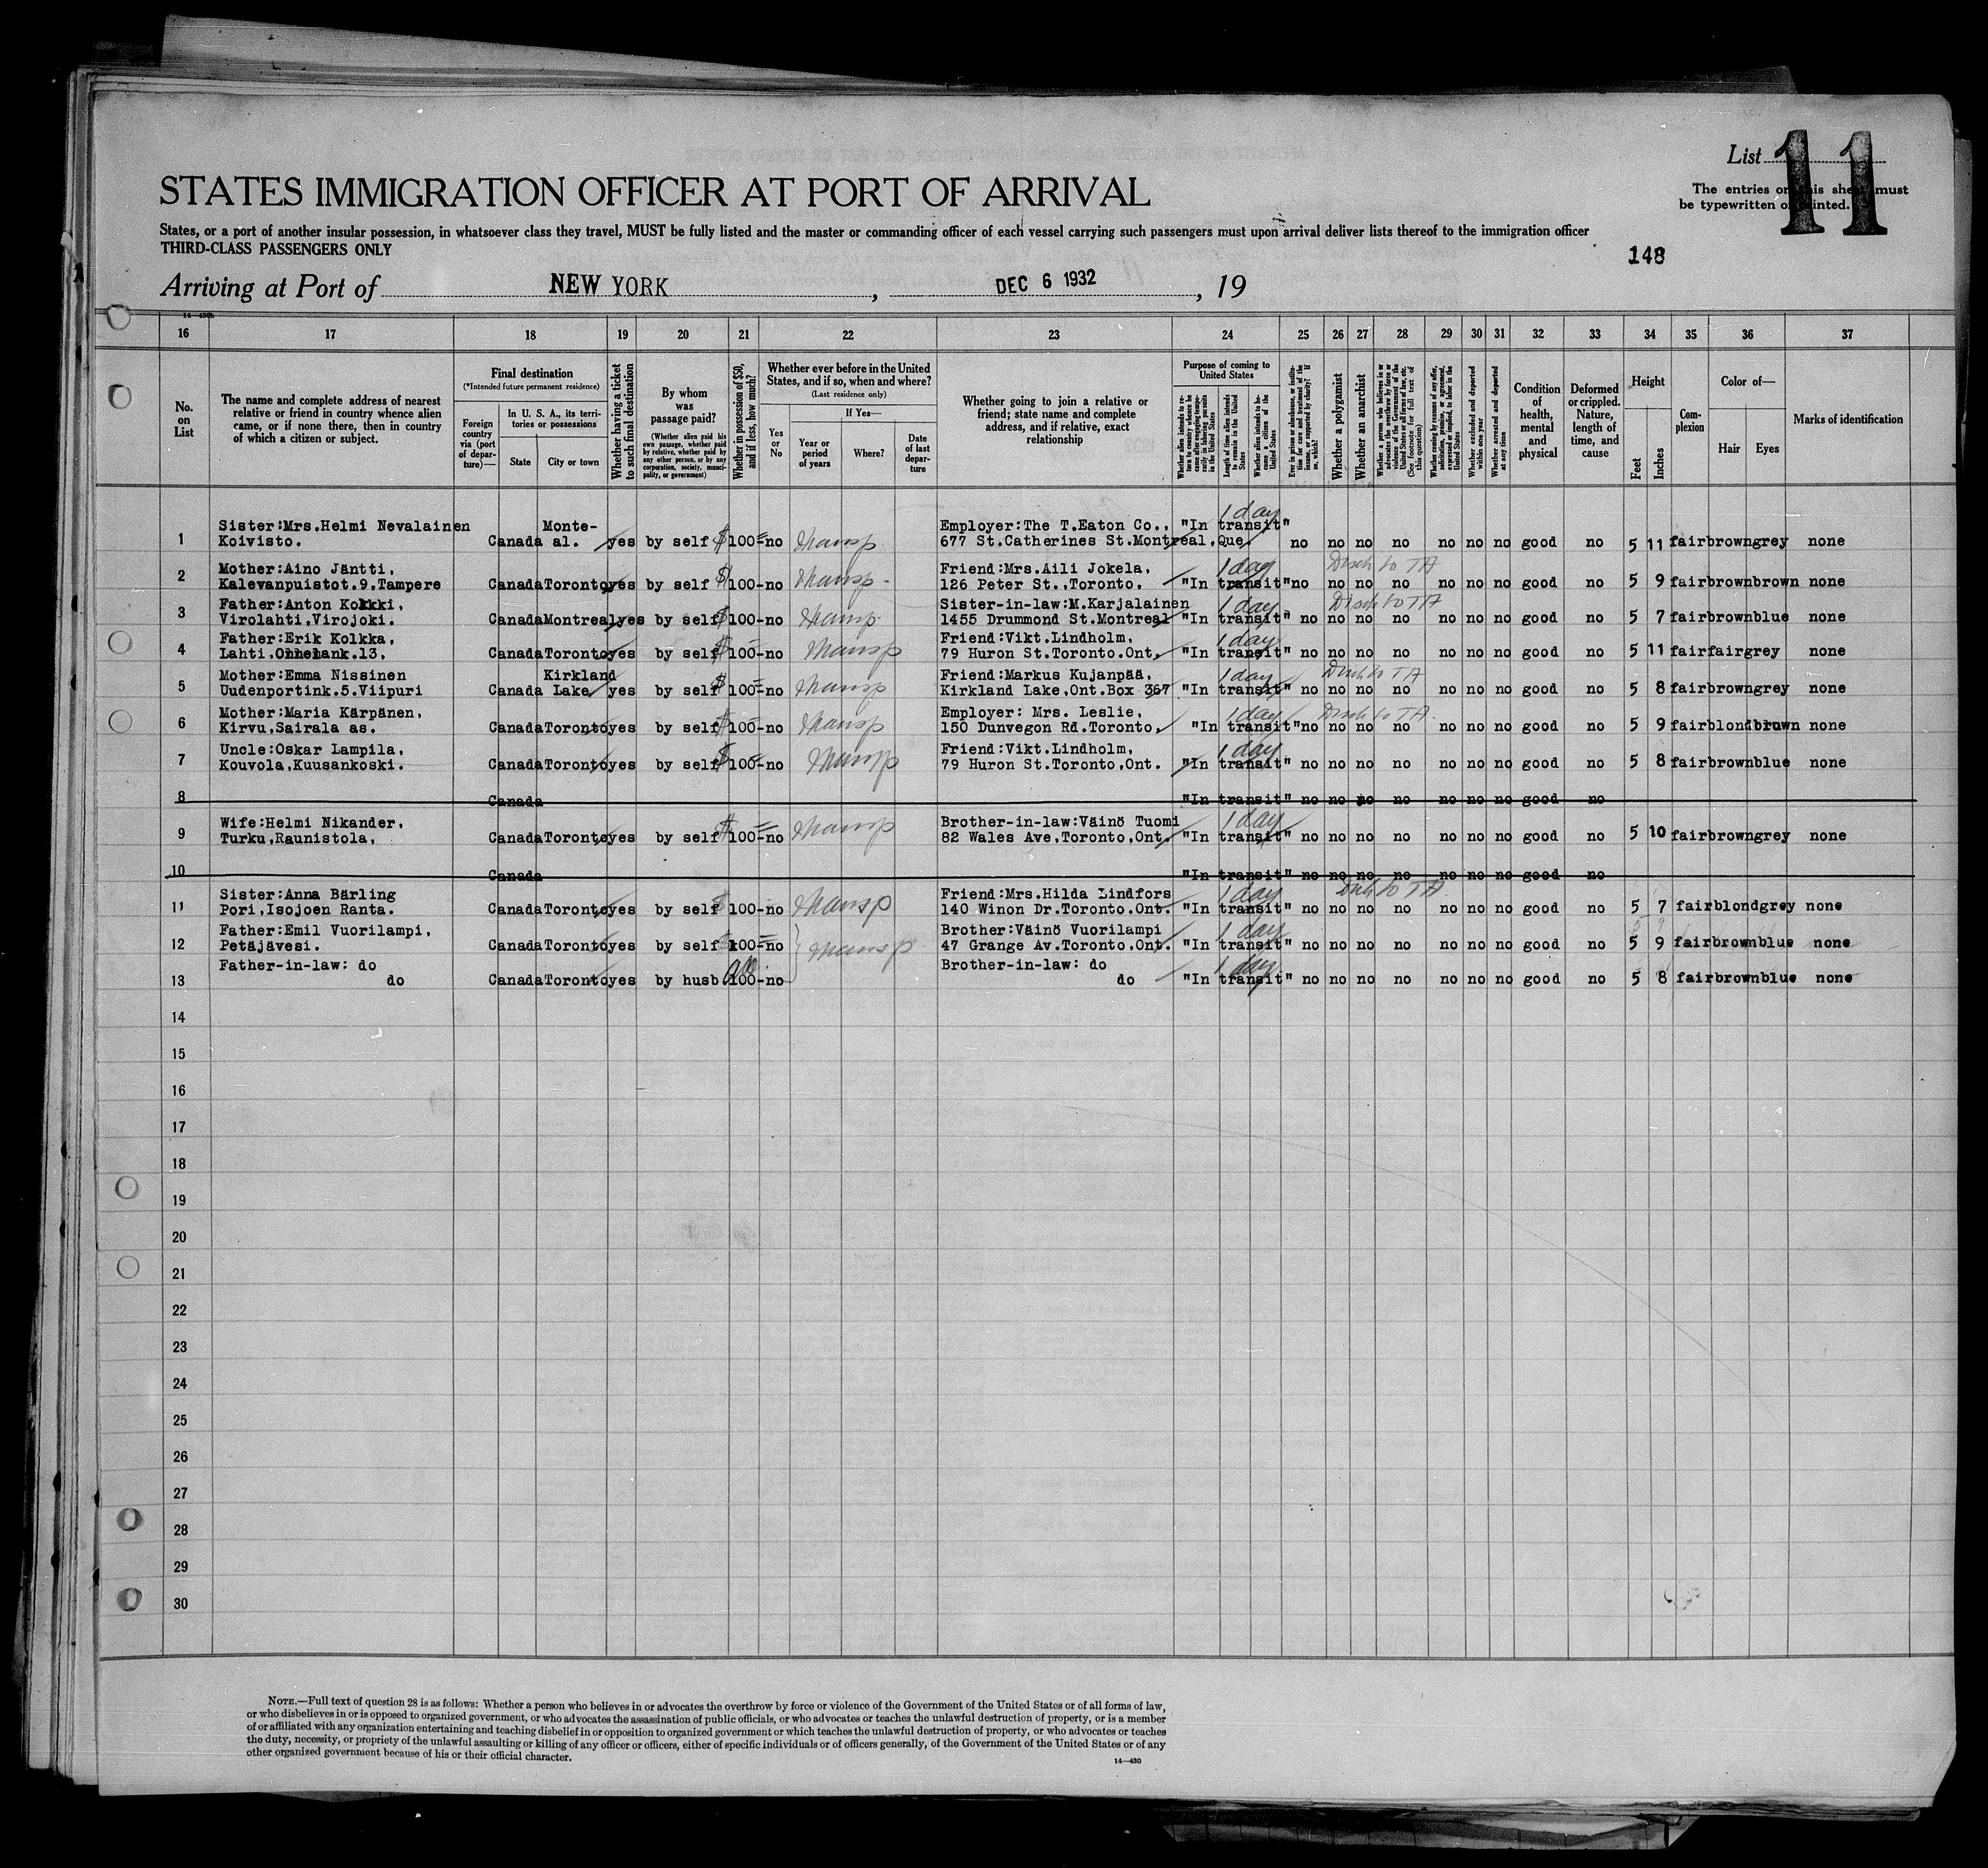 List 11
STATES IMMIGRATION OFFICER AT PORT OF ARRIVAL
The entries on this sheet must
be typewritten or printed.
States, or a port of another insular possession, in whatsoever class they travel, MUST be fully listed and the master or commanding officer of each vessel carrying such passengers must upon arrival deliver lists thereof to the immigration officer
THIRD-CLASS PASSENGERS ONLY
148
Arriving at Port of NEW YORK, DEC 6 1932, 19
16 17 18 19 20 21 22 23 24 25 26 27 28 29 30 31 32 33 34 35 36 37
No. on List
The name and complete address of nearest relative or friend in country whence alien came, or if none there, then in country of which a citizen or subject.
Final destination
(*Intended future permanent residence)
Foreign country via (port of departure)—
In U. S. A., its territories or possessions
State
City or town
Whether having a ticket to such final destination
By whom was passage paid?
(Whether alien paid his own passage, whether paid by relative, whether paid by any other person, or by any corporation, society, municipality, or government)
Whether in possession of $50, and if less, how much?
Whether ever before in the United States, and if so, when and where?
(Last residence only)
Yes or No
If Yes—
Year or period of years
Where?
Date of last departure
Whether going to join a relative or friend; state name and complete address, and if relative, exact relationship
Purpose of coming to United States
Whether alien intends to return to country whence he came after engaging temporarily in laboring pursuits in the United States
Length of time alien intends to remain in the United States
Whether alien intends to become a citizen of the United States
Ever in prison or almshouse, or institution for care and treatment of the insane, or supported by charity? If so, which?
Whether a polygamist
Whether an anarchist
Whether a person who believes in or advocates the overthrow by force or violence of the Government of the United States or all forms of law, etc. (See footnote for full text of this question)
Whether coming by reasons of any offer, solicitation, promise, or agreement, expressed or implied, to labor in the United States
Whether excluded and deported within one year
Whether arrested and deported at any time
Condition of health, mental and physical
Deformed or crippled. Nature, length of time, and cause
Height
Feet
Inches
Complexion
Color of—
Hair
Eyes
Marks of identification
1 Sister:Mrs.Helmi Nevalainen Monte- Employer:The T.Eaton Co., "In transit" 1 day
Koivisto. Canada al. yes by self $100- no transp. 677 St.Catherines St.Montreal,Que. no no no no no no no good no 5 11 fair brown grey none
2 Mother:Aino Jäntti, Friend:Mrs.Aili Jokela, 1 day Disch to TA
Kalevanpuistot.9,Tampere Canada Toronto yes by self $100- no transp. 126 Peter St.,Toronto. "In transit" no no no no no no no good no 5 9 fair brown brown none
3 Father:Anton Kokkki, Sister-in-law:M.Karjalainen 1 day Disch to TA
Virolahti,Virojoki. Canada Montreal yes by self $100- no transp. 1455 Drummond St.Montreal "In transit" no no no no no no no good no 5 7 fair brown blue none
4 Father:Erik Kolkka, Friend:Vikt.Lindholm, 1 day
Lahti. 13, Canada Toronto yes by self $100- no transp 79 Huron St.Toronto.Ont, "In transit" no no no no no no no good no 5 11 fair fair grey none
5 Mother:Emma Nissinen Kirkland Friend:Markus Kujanpää, 1 day Disch to TA
Uudenportink.5.Viipuri Canada Lake yes by self $100- no transp Kirkland Lake,Ont.Box 367 "In transit" no no no no no no no good no 5 8 fair brown grey none
6 Mother:Maria Kärpänen, Employer: Mrs. Leslie, 1 day Disch to TA.
Kirvu,Sairala as. Canada Toronto yes by self $100- no transp 150 Dunvegon Rd.Toronto, "In transit" no no no no no no no good no 5 9 fair blond brown none
7 Uncle:Oskar Lampila, Friend:Vikt.Lindholm, 1 day
Kouvola,Kuusankoski. Canada Toronto yes by self $100- no transp 79 Huron St.Toronto,Ont. "In transit" no no no no no no no good no 5 8 fair brown blue none
8 Canada "In transit" no no no no no no no good no
9 Wife:Helmi Nikander, Brother-in-law:Väinö Tuomi 1 day
Turku,Raunistola, Canada Toronto yes by self $100- no transp 82 Wales Ave,Toronto,Ont. "In transit" no no no no no no no good no 5 10 fair brown grey none
10 Canada "In transit" no no no no no no no good no
11 Sister:Anna Bärling Friend:Mrs.Hilda Lindfors 1 day Disch to TA
Pori,Isojoen Ranta. Canada Toronto yes by self $100- no transp 140 Winon Dr.Toronto.Ont. "In transit" no no no no no no no good no 5 7 fair blond grey none
12 Father:Emil Vuorilampi, Brother:Väinö Vuorilampi 1 day
Petäjävesi. Canada Toronto yes by self 100- no transp 47 Grange Av.Toronto,Ont. "In transit" no no no no no no no good no 5 9 fair brown blue none
13 Father-in-law: do Brother-in-law: do 1 day
do Canada Toronto yes by husb 100- no do "In transit" no no no no no no no good no 5 8 fair brown blue none
14
15
16
17
18
19
20
21
22
23
24
25
26
27
28
29
30
NOTE.—Full text of question 28 is as follows: Whether a person who believes in or advocates the overthrow by force or violence of the Government of the United States or of all forms of law,
or who disbelieves in or is opposed to organized government, or who advocates the assassination of public officials, or who advocates or teaches the unlawful destruction of property, or is a member
of or affiliated with any organization entertaining and teaching disbelief in or opposition to organized government or which teaches the unlawful destruction of property, or who advocates or teaches
the duty, necessity, or propriety of the unlawful assaulting or killing of any officer or officers, either of specific individuals or of officers generally, of the Government of the United States or of any
other organized government because of his or their official character.
14—430